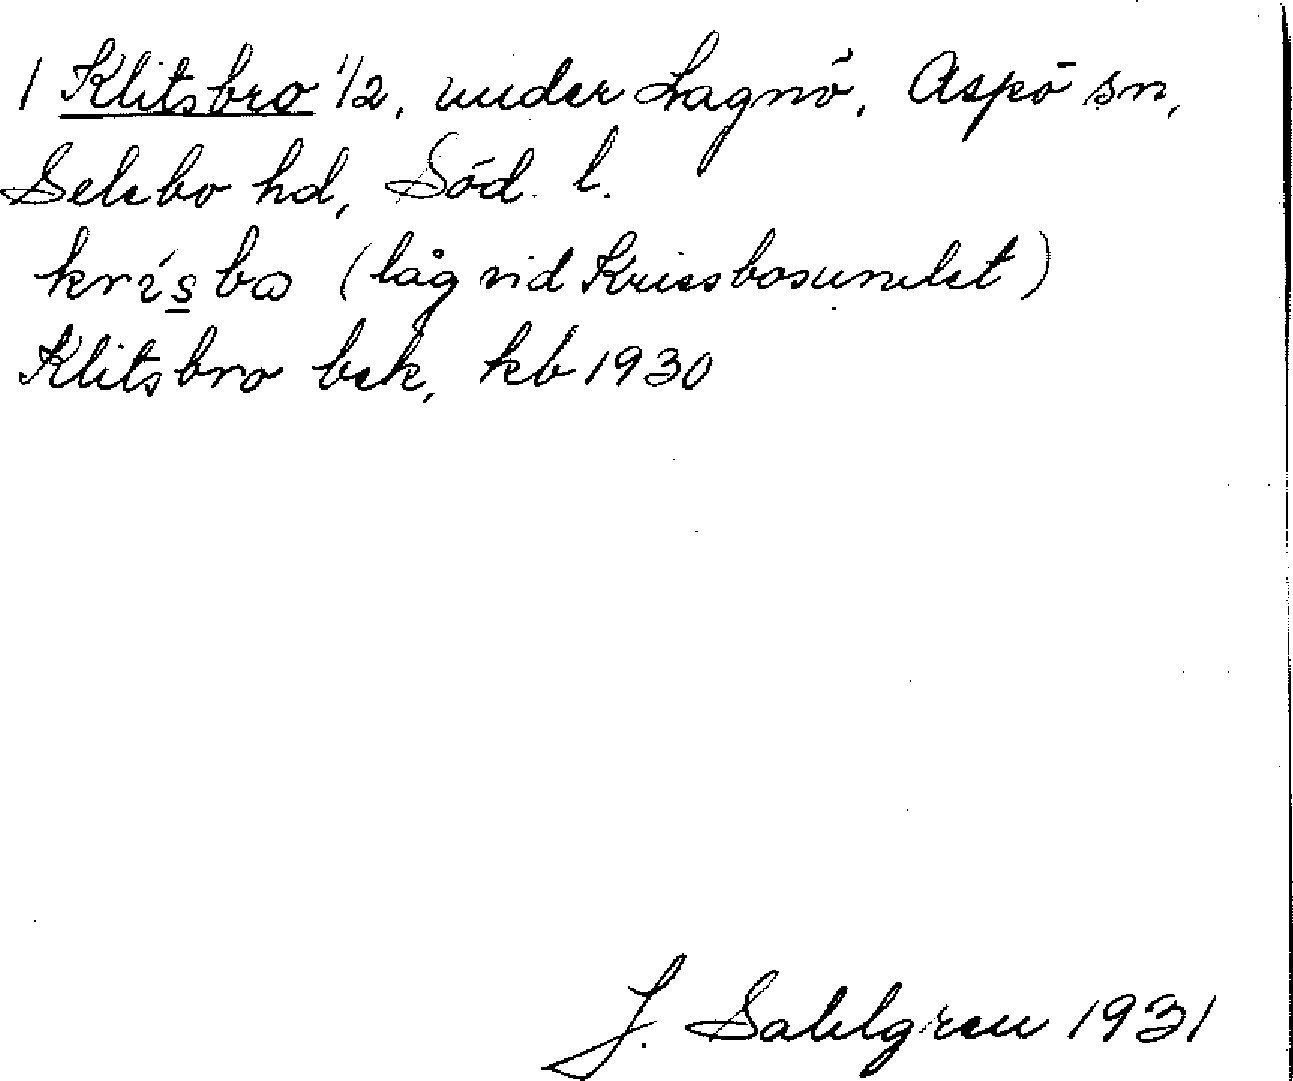 1 Klitsbro 1/2, under Lagnö, Aspö sn,
Selebo hd, Söd. l.
krisbo (låg vid Krissbosundet)
Klitsbro bek, kb 1930
J. Sahlgren 1931